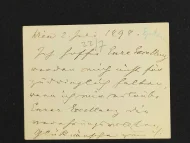 Wien 2 Juli 1898.
22/7
Ich hoffe Eure Excellenz
werden mich nicht für
zudringlich halten,
wenn ich mir erlaube
Eurer Excellenz die